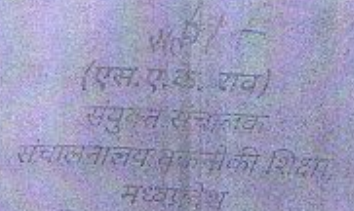 सही/-
(एस.ए.के. राव)
संयुक्त संचालक
संचालनालय तकनीकी शिक्षा,
मध्यप्रदेश